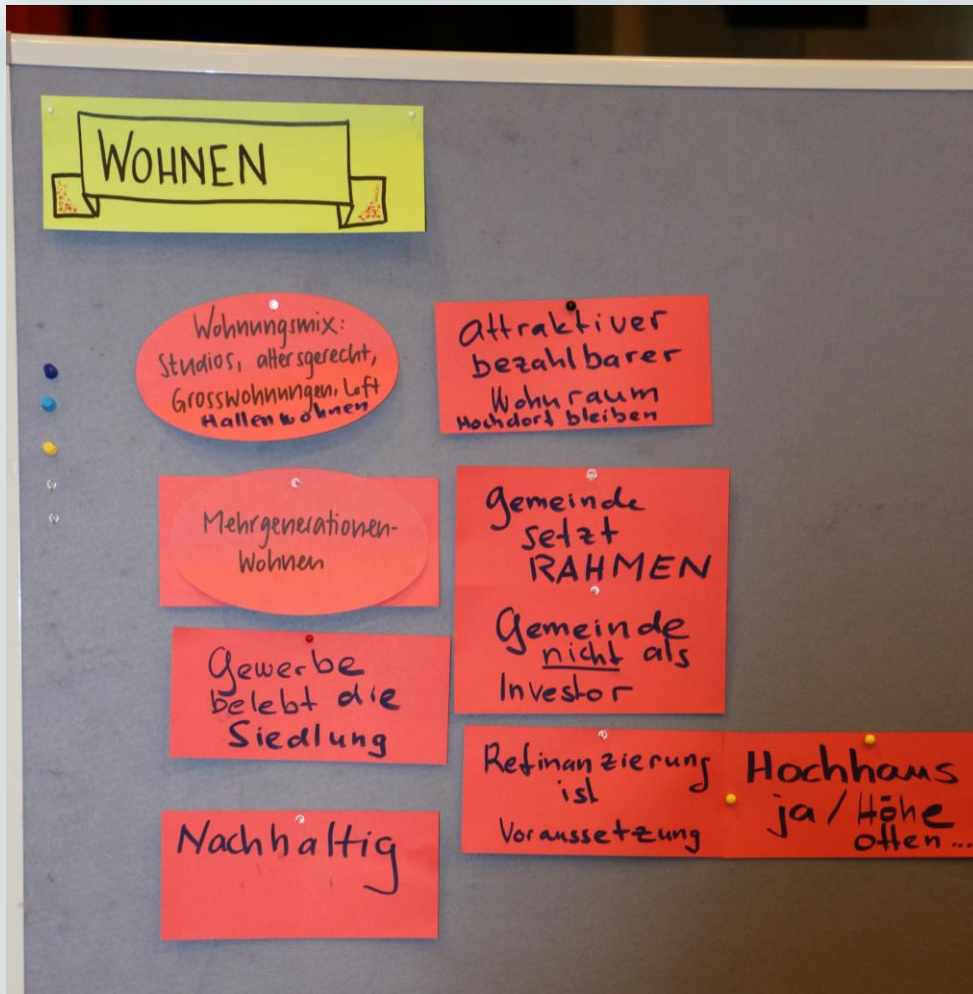 WOHNEN
Wohnungsmix:
Studios, altersgerecht,
Grosswohnungen, Loft
Hallenwohnen
Attraktiver
bezahlbarer
Wohnraum
Hochdorf bleiben
Mehrgenerationen-
Wohnen
Gemeinde
setzt
RAHMEN
Gemeinde
nicht als
Investor
Gewerbe
belebt die
Siedlung
Refinanzierung
ist
Voraussetzung
Hochhaus
ja/Höhe
offen...
Nachhaltig